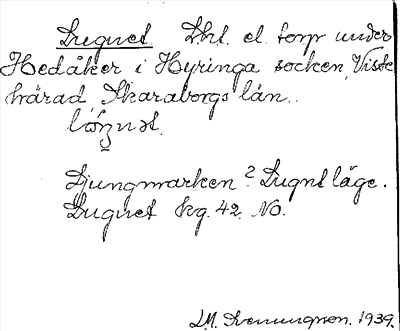 Lugnet Lht. el. torp under
Hedåker i Hyringa socken, Viste
härad, Skaraborgs län.
Ljungmarken? Lugnt läge.
Lugnet kg. 42. No.
1939.